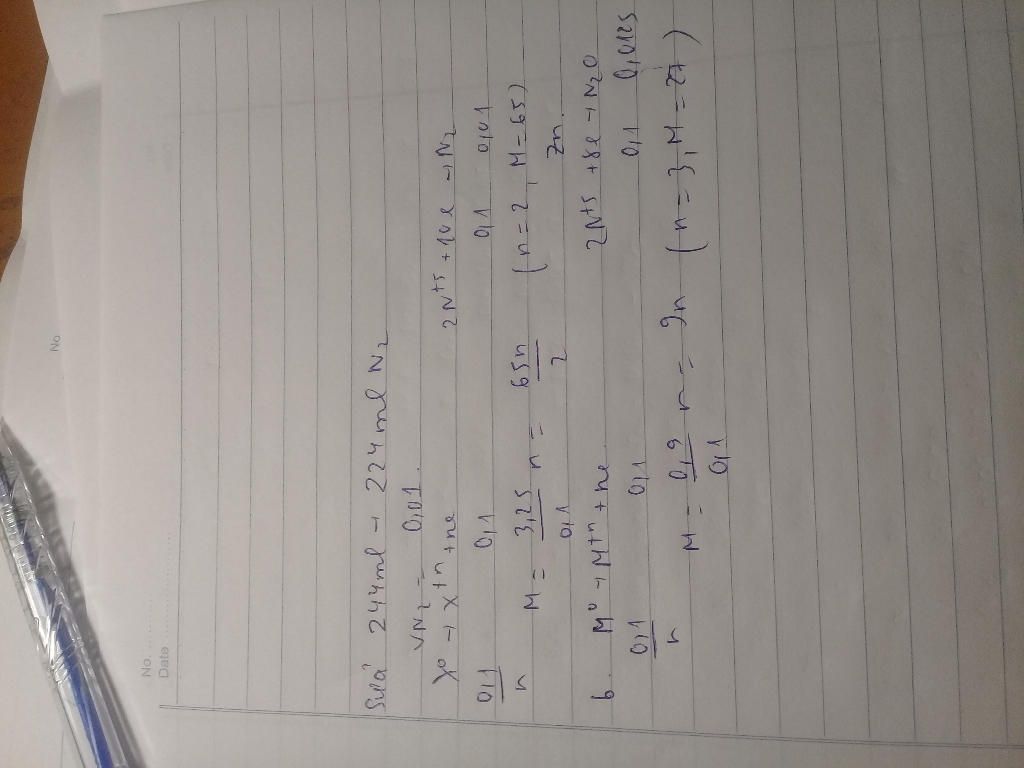 No. ............
Date ............
Sửa 244ml → 224ml N2
VN2 = 0,01
X0 → X+n + ne 2N+5 + 10e → N2
0,1/n 0,1 0,1 0,01
M = 3,25/0,1 n = 65n/2 (n = 2, M = 65)
Zn.
b. M0 → M+n + ne 2N+5 + 8e → N2O
0,1/n 0,1 0,1 0,0125
M = 0,9/0,1 n = 9n (n = 3, M = 27)
No